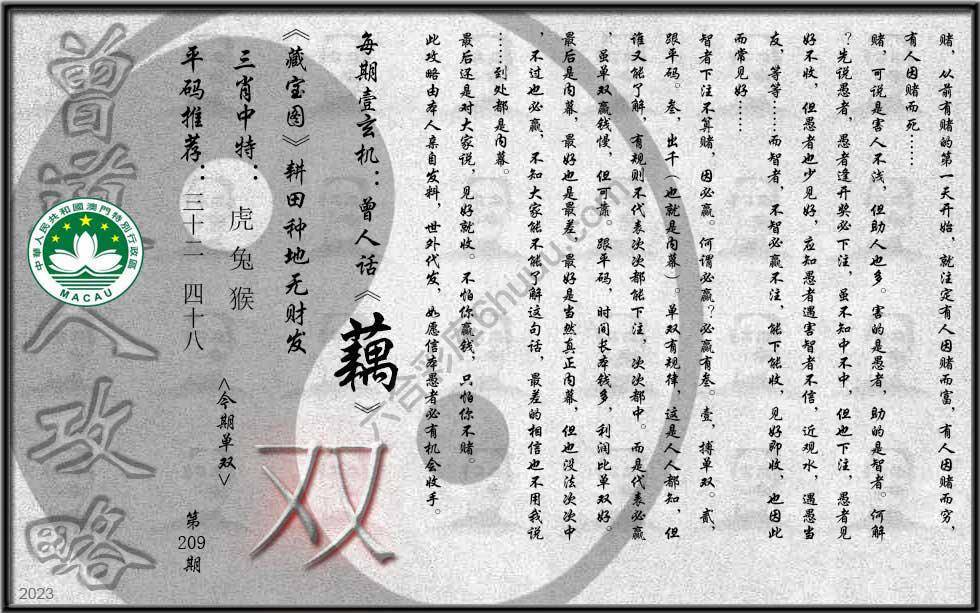 赌，从前有赌的第一天开始，就注定有人因赌而富，有人因赌而穷，
有人因赌而死……
赌，可说是害人不浅，但助人也多。害的是愚者，助的是智者。何解
？先说愚者，愚者逢开奖必下注，虽不知中不中，但也下注，愚者见
好不收，但愚者也少见好，应知愚者遇害智者不信，近观水，遇愚当
友，等等……而智者，不智必赢不注，能下能收，见好即收，也因此
而常见好……
智者下注不算赌，因必赢。何谓必赢？必赢有叁。壹，搏单双。贰，
跟平码。叁，出千（也就是内幕）。单双有规律，这是人人都知，但
谁又能了解，有规则不代表次次都能下注，次次都中。而是代表必赢
，虽单双赢钱慢，但可靠。跟平码，时间长本钱多，利润比单双好。
最后是内幕，最好也是最差，最好是当然真正内幕，但也没法次次中
，不过也必赢，不知大家能不能了解这句话，最差的相信也不用我说
……到处都是内幕。
最后还是对大家说，见好就收。不怕你赢钱，只怕你不赌。
此攻略由本人亲自发料，世外代发，如愿信本愚者必有机会收手。
每期壹玄机：曾人话《藕》
《藏宝图》耕田种地无财发
三肖中特： 虎 兔 猴
平码推荐：三十二 四十八
<今期单双>
双
第
209
期
曾道人攻略
中華人民共和國澳門特別行政區
MACAU
六合彩库6huhu.com
2023